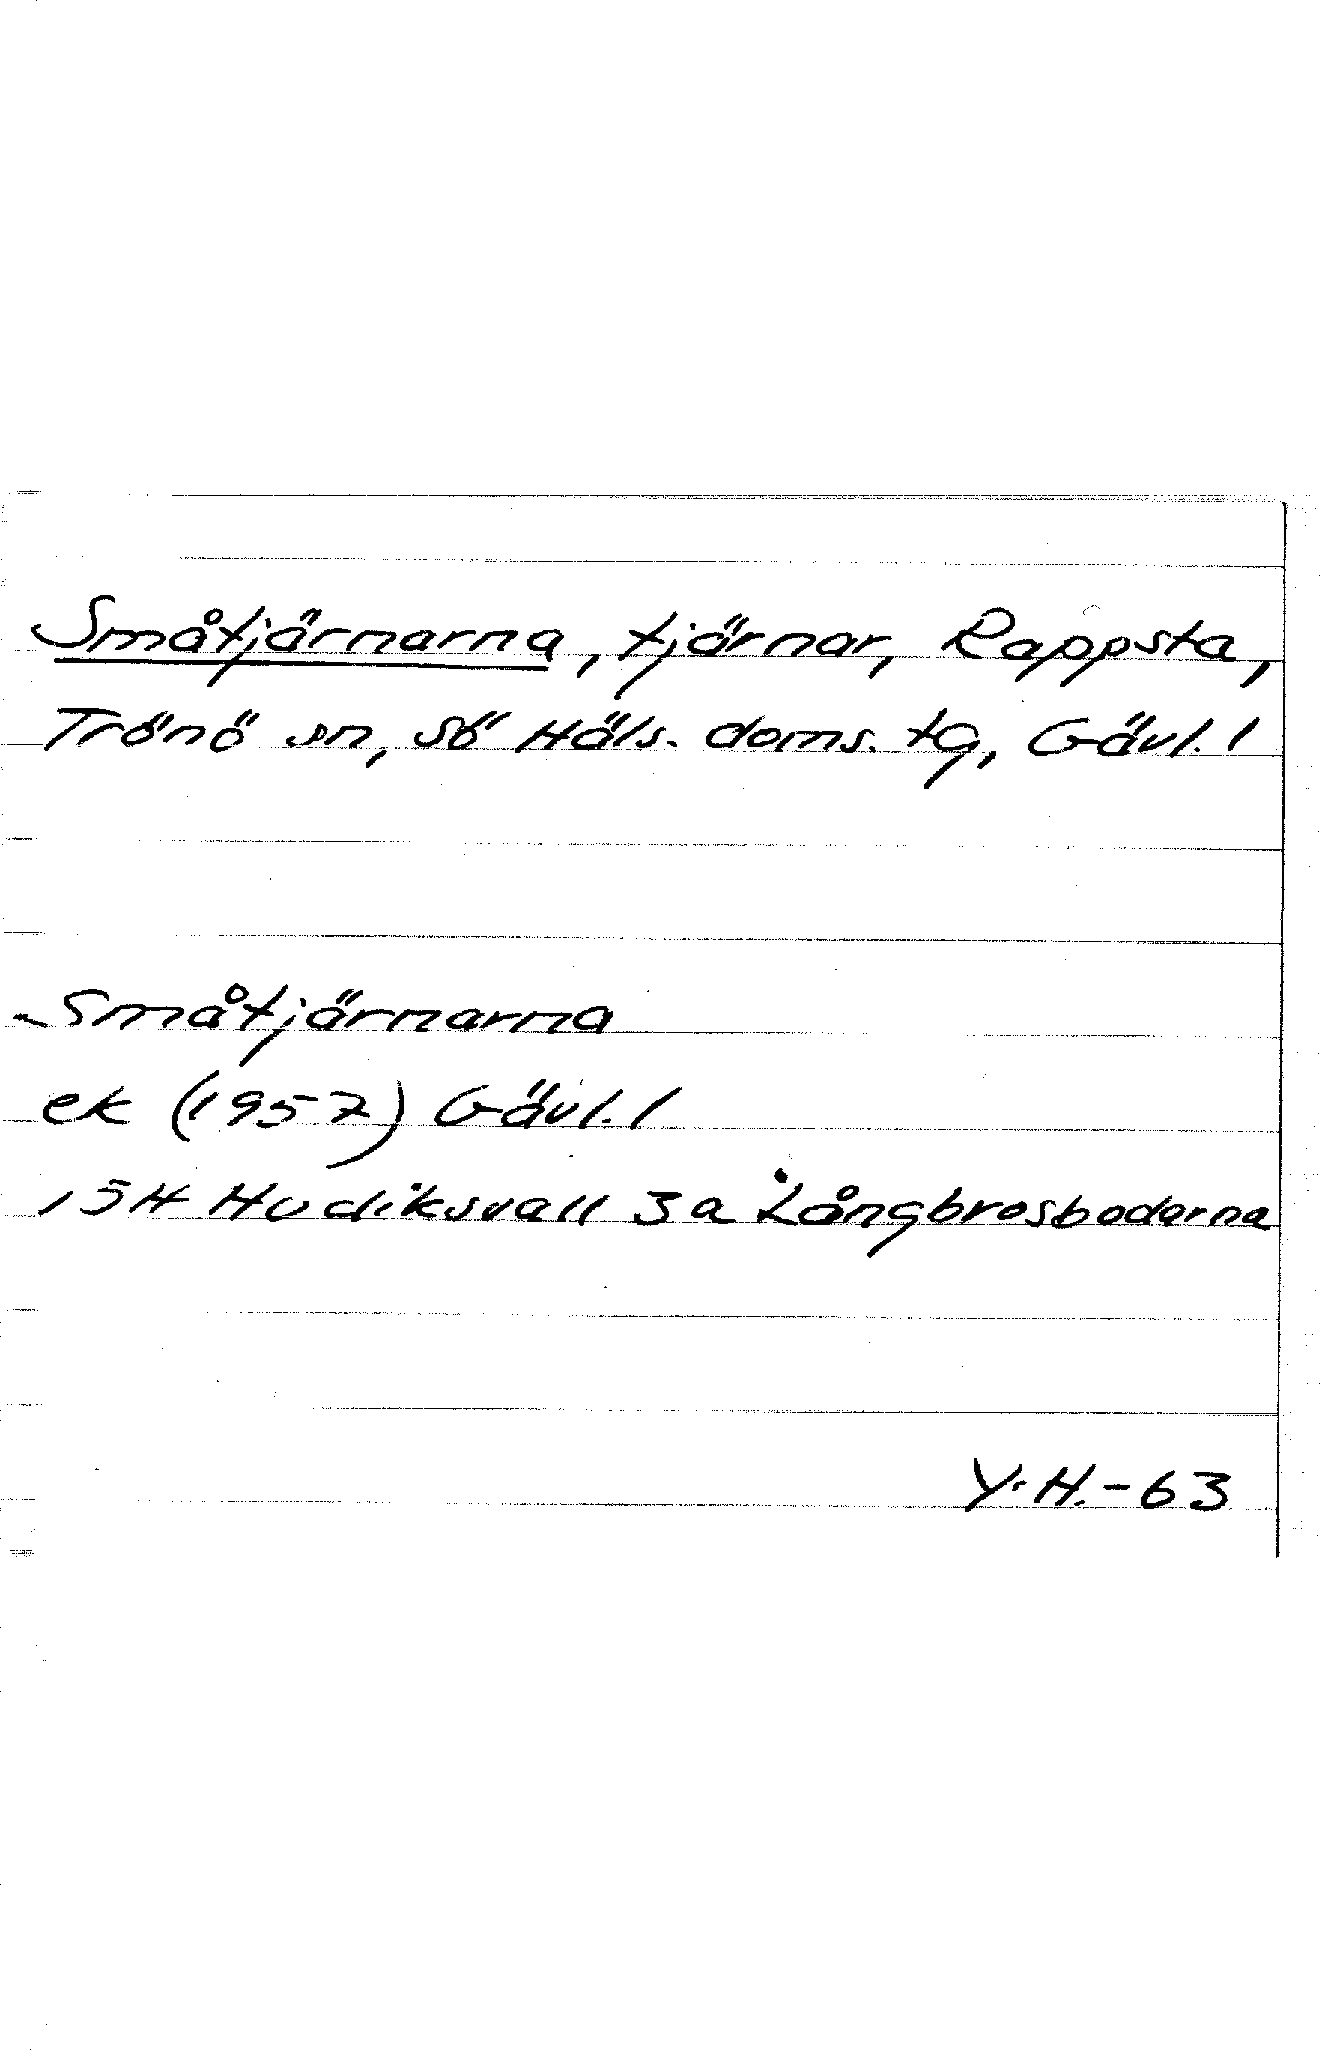 Småtjärnarna, tjärnar, Rappsta,
Trönö sn, Sö Häls. doms. tg, Gävl. l
Småtjärnarna
ek (1957) Gävl. l
15H Hudiksvall 3a Långbrosbodarna
Y.H.-63